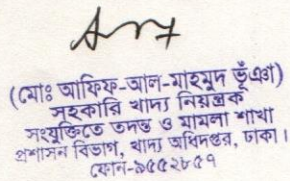 (মোঃ আফিফ-আল-মাহমুদ ভূঁঞা)
সহকারি খাদ্য নিয়ন্ত্রক
সংযুক্তিতে তদন্ত ও মামলা শাখা
প্রশাসন বিভাগ, খাদ্য অধিদপ্তর, ঢাকা।
ফোন-৯৫৫২৮৫৭